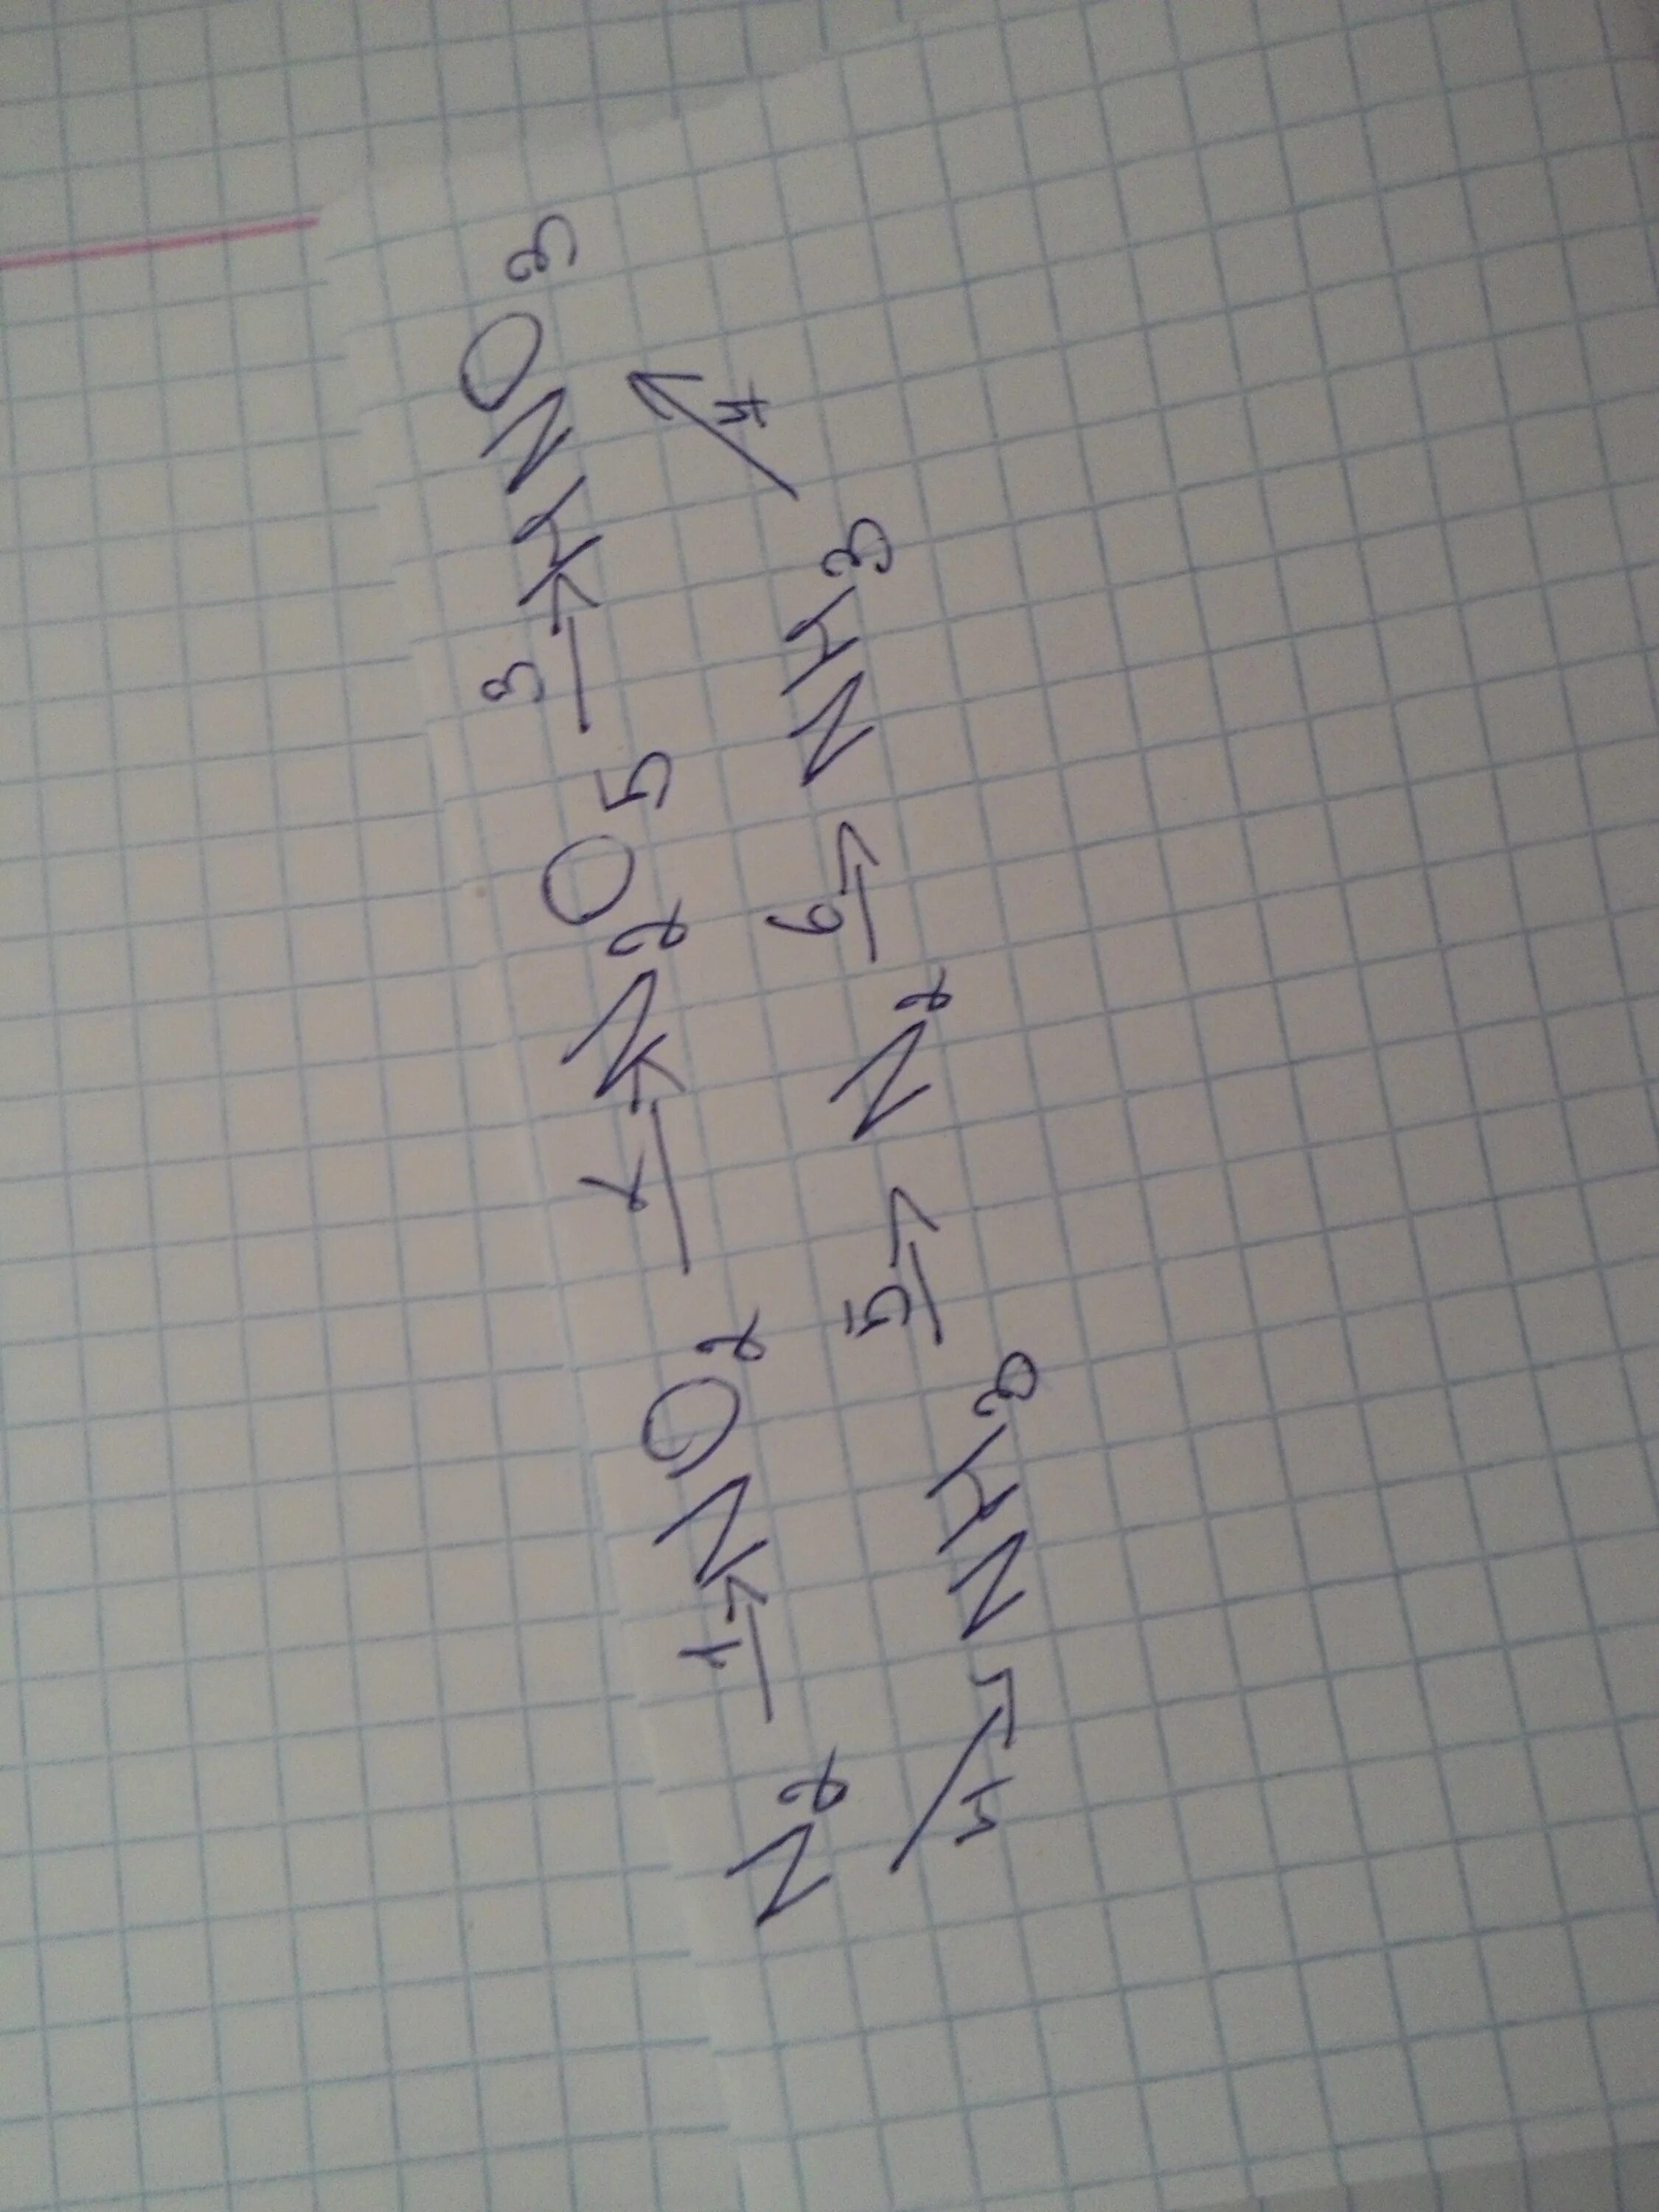 N2 1→ NO2 2→ N2O5 3→ HNO3
4→ NH3 5→ N2 6→ NH3 4→